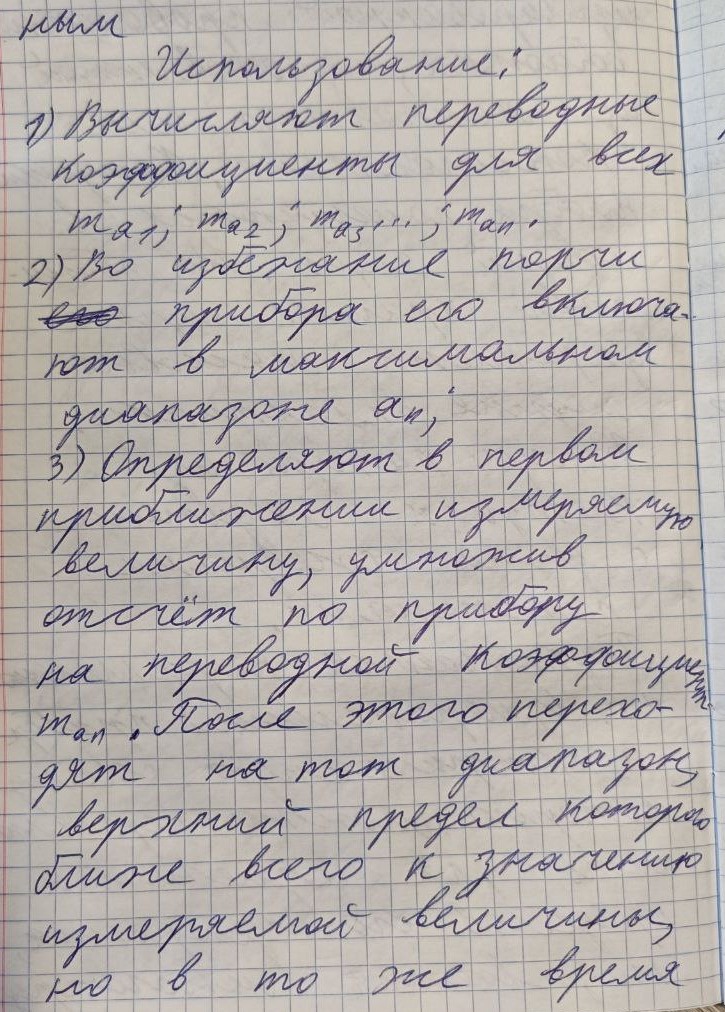 ным
Использование:
1) Вычисляют переводные
коэффициенты для всех
ma1; ma2; ma3...; man.
2) Во избежание порчи
прибора его включа-
ют в максимальном
диапазоне an;
3) Определяют в первом
приближении измеряемую
величину, умножив
отсчёт по прибору
на переводной коэффициент
man. После этого перехо-
дят на тот диапазон,
верхний предел которого
ближе всего к значению
измеряемой величины,
но в то же время